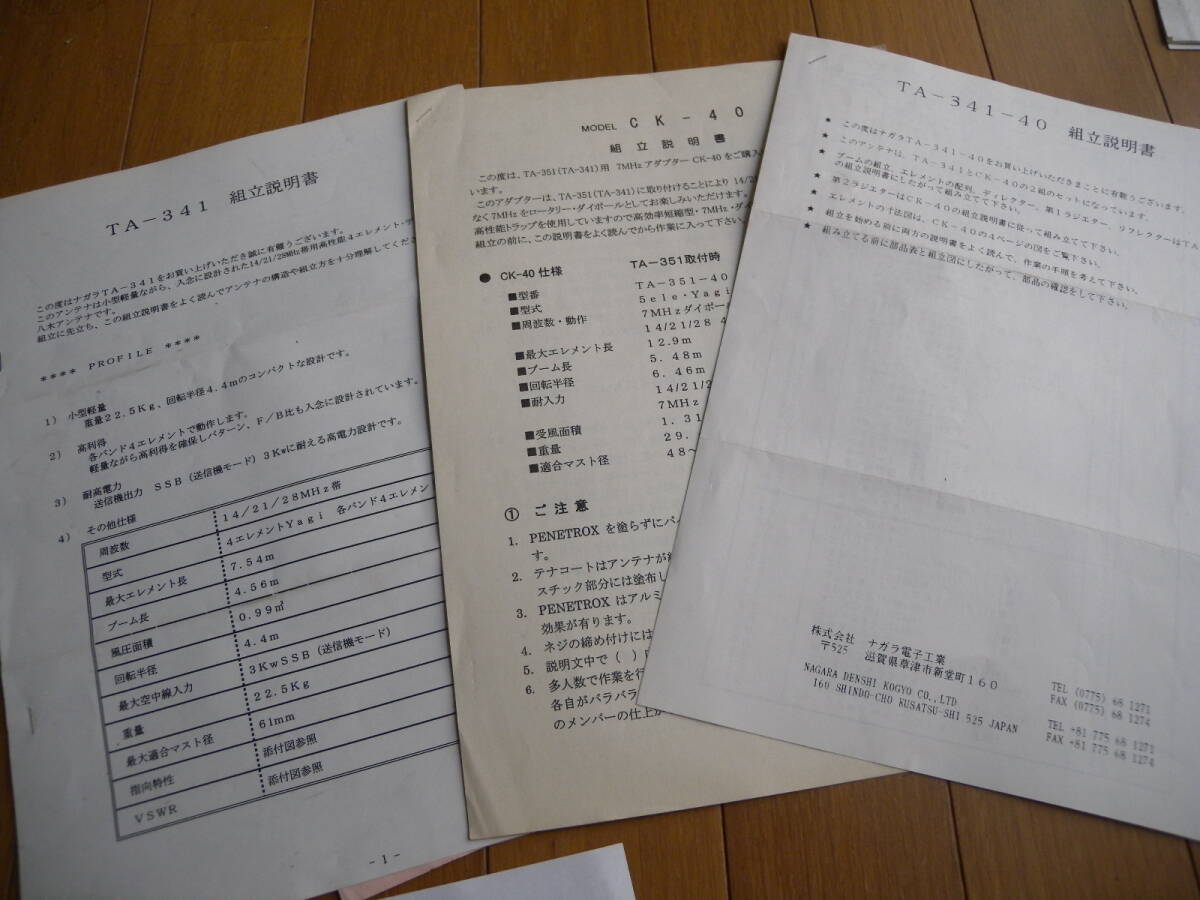 TA-341 組立説明書
この度はナガラTA-341をお買い上げいただき誠に有難うございます。
このアンテナは小型軽量ながら、入念に設計された14/21/28MHz帯用高性能4エレメント・
八木アンテナです。
組立に先立ち、この組立説明書をよく読んでアンテナの構造や組立方を十分理解してくださ
**** PROFILE ****
1) 小型軽量
重量22.5Kg、回転半径4.4mのコンパクトな設計です。
2) 高利得
各バンド4エレメントで動作します。
軽量ながら高利得を確保しパターン、F/B比も入念に設計されています。
3) 耐高電力
送信機出力 SSB(送信機モード)3Kwに耐える高電力設計です。
4) その他仕様
周波数 14/21/28MHz帯
型式 4エレメントYagi 各バンド4エレメン
最大エレメント長 7.54m
ブーム長 4.56m
風圧面積 0.99㎡
回転半径 4.4m
最大空中線入力 3KwSSB(送信機モード)
重量 22.5Kg
最大適合マスト径 61mm
指向特性 添付図参照
VSWR 添付図参照
-1-
MODEL CK-40
組立説明書
この度は、TA-351(TA-341)用 7MHzアダプターCK-40をご購入
います。
このアダプターは、TA-351(TA-341)に取り付けることにより14/21
なく7MHzをロータリー・ダイポールとしてお楽しみいただけます。
高性能トラップを使用していますので高効率短縮型・7MHz・ダイ
組立の前に、この説明書をよく読んでから作業に入って下さい。
● CK-40仕様 TA-351取付時
■型番 TA-351-40
■型式 5ele・Yagi
■周波数・動作 7MHzダイポー
14/21/28 4
■最大エレメント長 12.9m
■ブーム長 5.48m
■回転半径 6.46m
■耐入力 14/21/2
7MHz
■受風面積 1.31
■重量 29.
■適合マスト径 48~
① ご注意
1. PENETROXを塗らずにパイ
す。
2. テナコートはアンテナが
スチック部分には塗布し
3. PENETROXはアルミ
効果が有ります。
4. ネジの締め付けには
5. 説明文中で( )
6. 多人数で作業を行
各自がバラバラ
のメンバーの仕上が
TA-341-40 組立説明書
★ この度はナガラTA-341-40をお買い上げいただきまことに有難うございます。
★ このアンテナは、TA-341とCK-40の2組のセットになっています。
★ ブームの組立、エレメントの配列、ディレクター、第1ラジエター、リフレクターはTA
の組立説明書にしたがって組み立てて下さい。
★ 第2ラジエターはCK-40の組立説明書に従って組み立てて下さい。
★ エレメントの寸法図は、CK-40の4ページの図をご覧下さい。
★ 組立を始める前に両方の説明書をよく読んで、作業の手順を考えて下さい。
★ 組み立てる前に部品表と組立図にしたがって、部品の確認をして下さい。
株式会社 ナガラ電子工業
〒525 滋賀県草津市新堂町160
TEL (0775) 68 1271
FAX (0775) 68 1274
NAGARA DENSHI KOGYO CO.,LTD
160 SHINDO-CHO KUSATSU-SHI 525 JAPAN
TEL +81 775 68 1271
FAX +81 775 68 1274